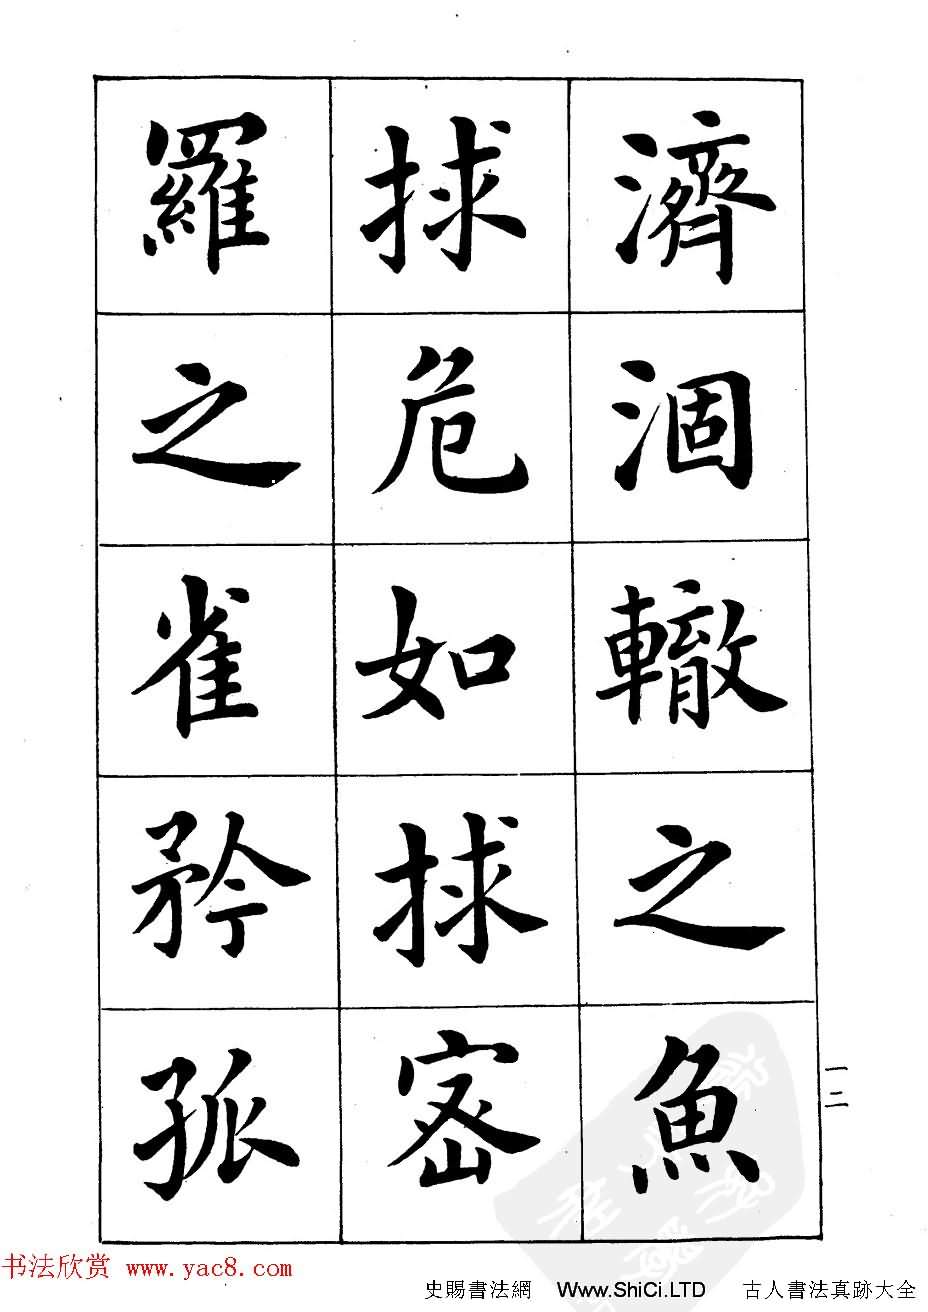 濟涸轍之魚
捄危如捄密
羅之雀矜孤
一二
书法欣赏 www.yac8.com
史賜書法網 Www.ShiCi.LTD 古人書法真跡大全